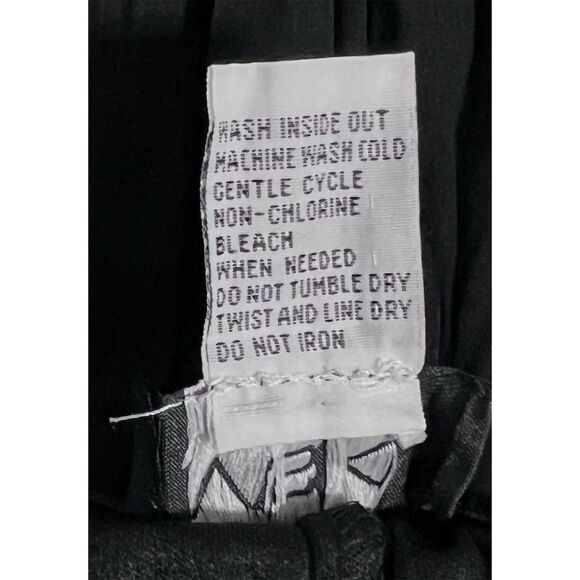 WASH INSIDE OUT
MACHINE WASH COLD
GENTLE CYCLE
NON-CHLORINE
BLEACH
WHEN NEEDED
DO NOT TUMBLE DRY
TWIST AND LINE DRY
DO NOT IRON